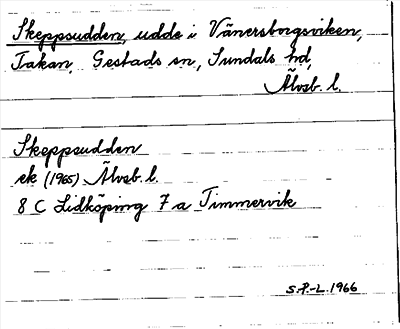 Skeppsudden, udde i Vänersborgsviken,
Takan, Gestads sn, Sundals hd,
Älvsb. l.
Skeppsudden
ek (1965) Älvsb. l.
8 C Lidköping 7 a Timmervik
S.P.-L. 1966